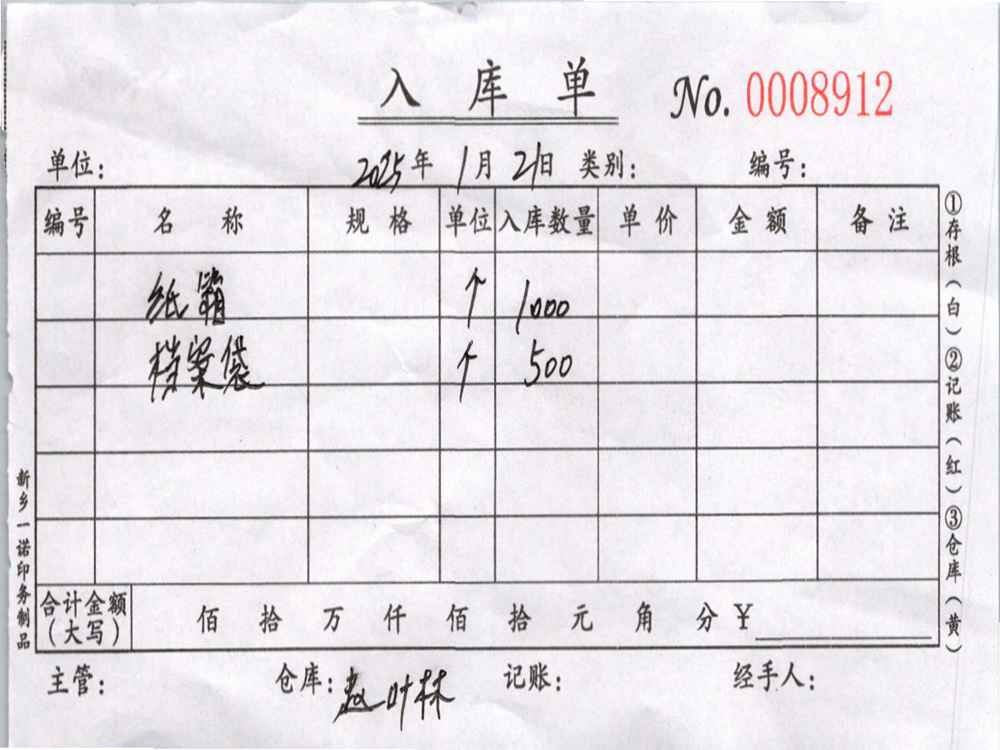 入库单 No. 0008912
单位: 2025年1月21日 类别: 编号:
编号 名称 规格 单位 入库数量 单价 金额 备注
纸箱 个 1000
档案袋 个 500
合计金额(大写) 佰 拾 万 仟 佰 拾 元 角 分 ¥
主管: 仓库:赵叶林 记账: 经手人:
①存根(白)②记账(红)③仓库(黄)
新乡一诺印务制品